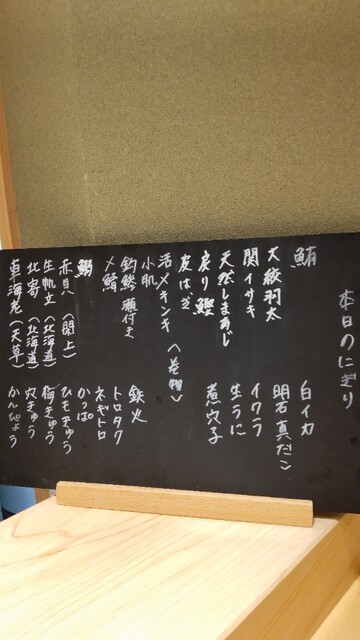 本日のにぎり
鮪
大紋羽太
関イサキ
天然しまあじ
戻り鰹
皮はぎ
活〆キンキ
小肌
釣鯵 瀬付き
〆鯖
鰯
赤貝（閖上）
生帆立（北海道）
北寄（北海道）
車海老（天草）
白イカ
明石真だこ
イクラ
生うに
煮穴子
〈巻物〉
鉄火
トロタク
ネギトロ
かっぱ
ひもきゅう
梅きゅう
穴きゅう
かんぴょう